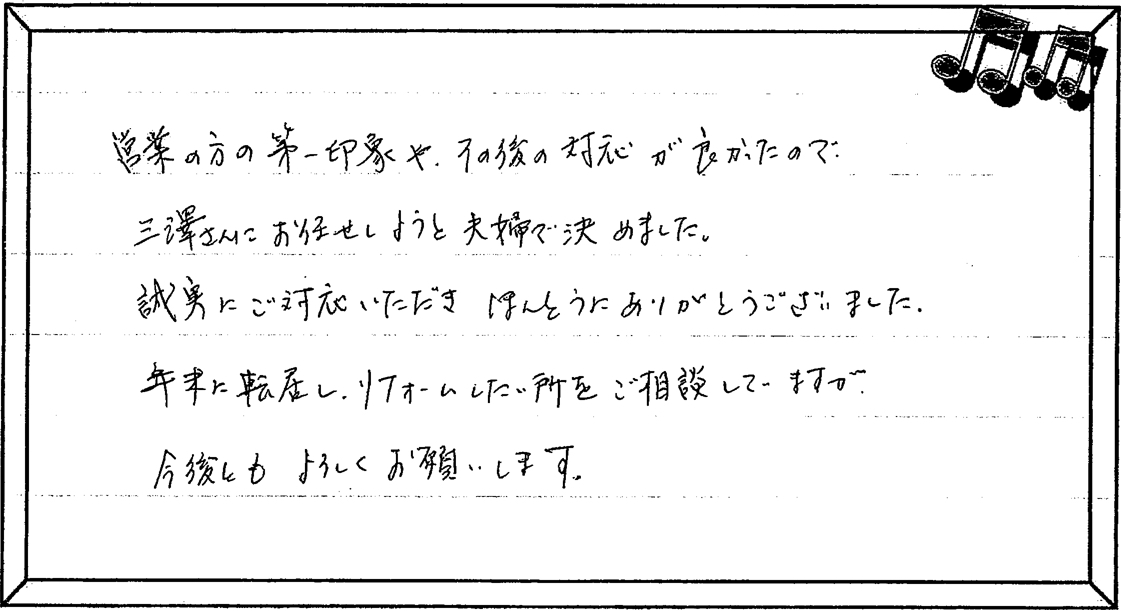 営業の方の第一印象や、その後の対応が良かったので、
三澤さんにお任せしようと夫婦で決めました。
誠実にご対応いただき ほんとうにありがとうございました。
年末に転居し、リフォームしたい所をご相談していますが、
今後とも よろしくお願いします。